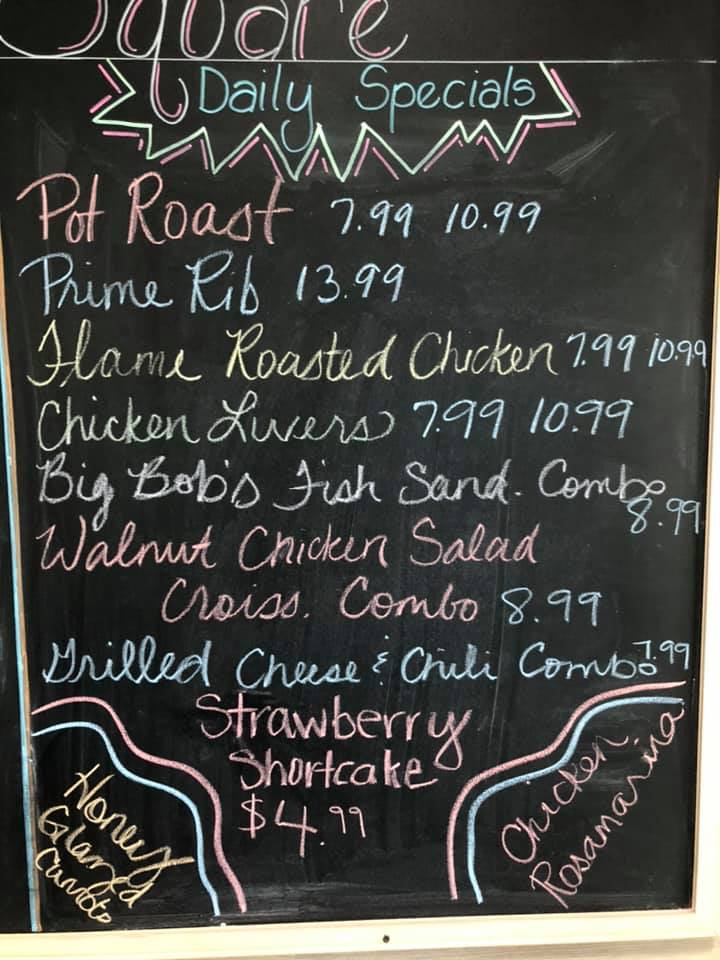 Square
Daily Specials
Pot Roast 7.99 10.99
Prime Rib 13.99
Flame Roasted Chicken 7.99 10.99
Chicken Livers 7.99 10.99
Big Bob's Fish Sand. Combo
8.99
Walnut Chicken Salad
Croiss. Combo 8.99
Grilled Cheese & Chili Combo 7.99
Strawberry
Shortcake
$4.99
Honey
Glazed
Carrots
Chicken
Rosamarina